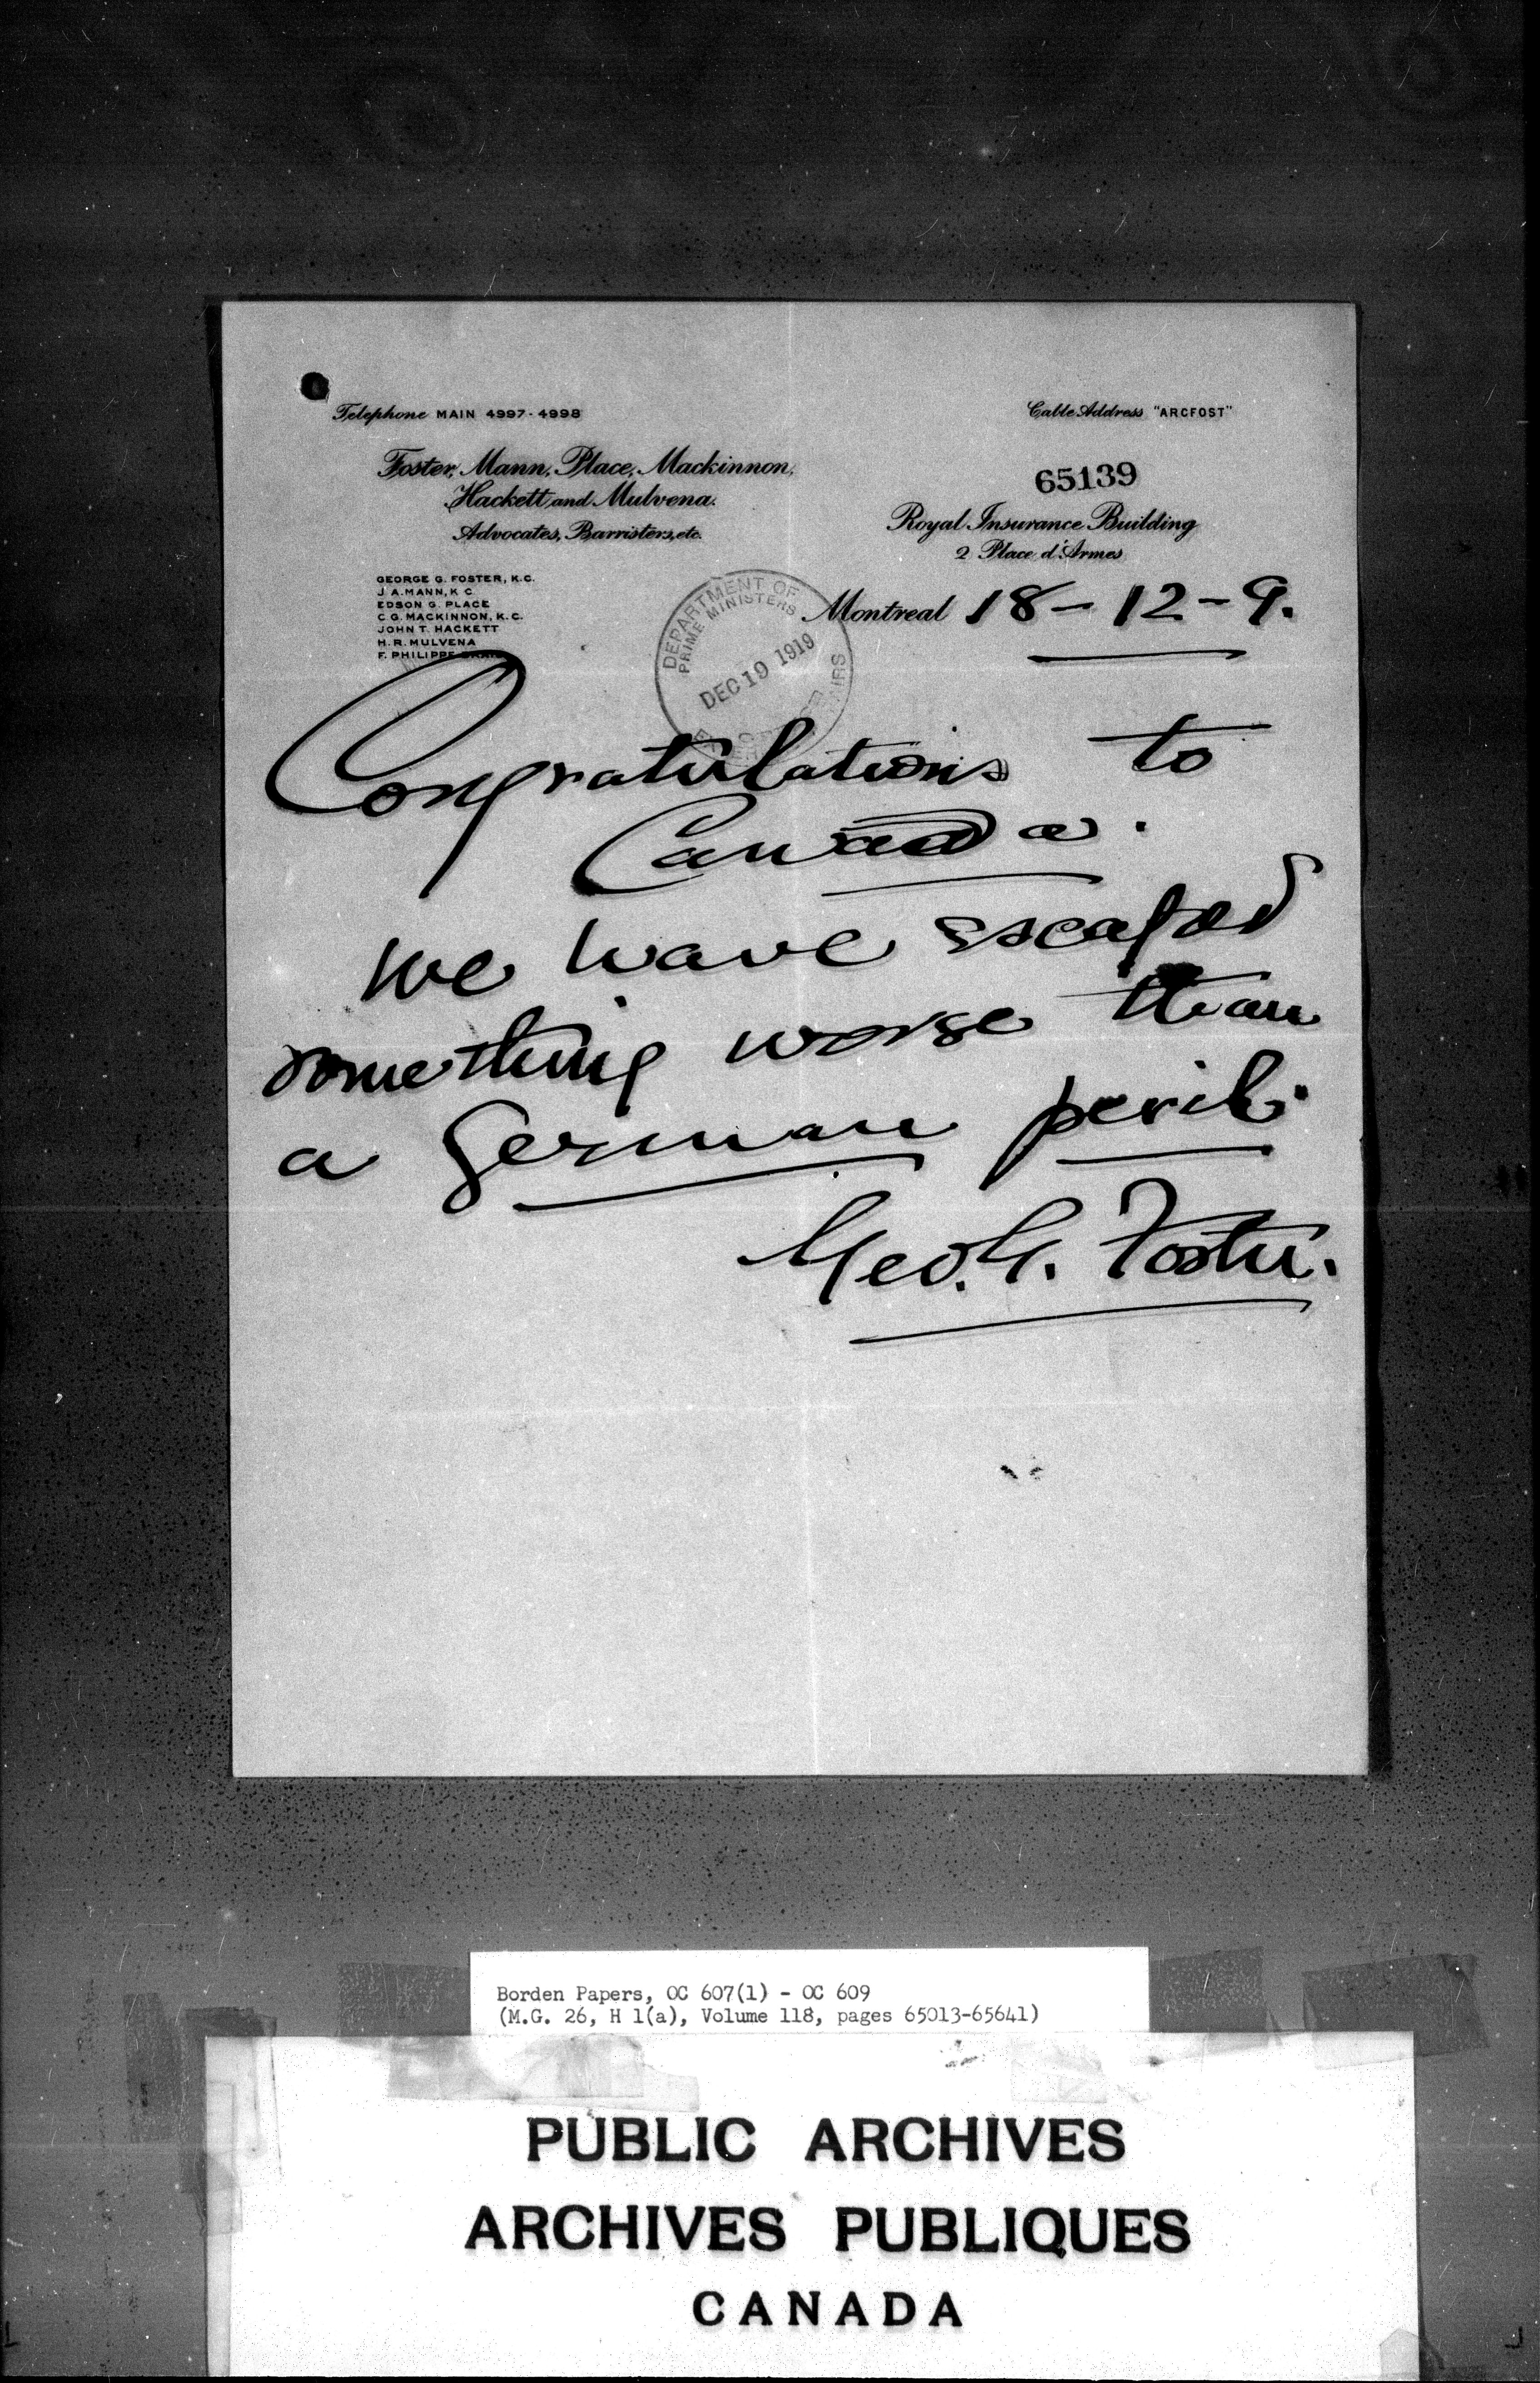 Telephone MAIN 4997-4998
Cable Address "ARCFOST"
Foster, Mann, Place, Mackinnon,
Hackett and Mulvena.
Advocates, Barristers, etc.
65139
Royal Insurance Building
2 Place d'Armes
GEORGE G. FOSTER, K.C.
J. A. MANN, K C
EDSON G. PLACE
C. G. MACKINNON, K.C.
JOHN T. HACKETT
H. R. MULVENA
F. PHILIPPE
DEPARTMENT OF
PRIME MINISTERS
DEC 19 1919
Montreal 18-12-9.
Congratulations to
Canada.
We have escaped
something worse than
a German peril.
Geo. G. Foster.
Borden Papers, OC 607(1) - OC 609
(M.G. 26, H 1(a), Volume 118, pages 65013-65641)
PUBLIC ARCHIVES
ARCHIVES PUBLIQUES
CANADA